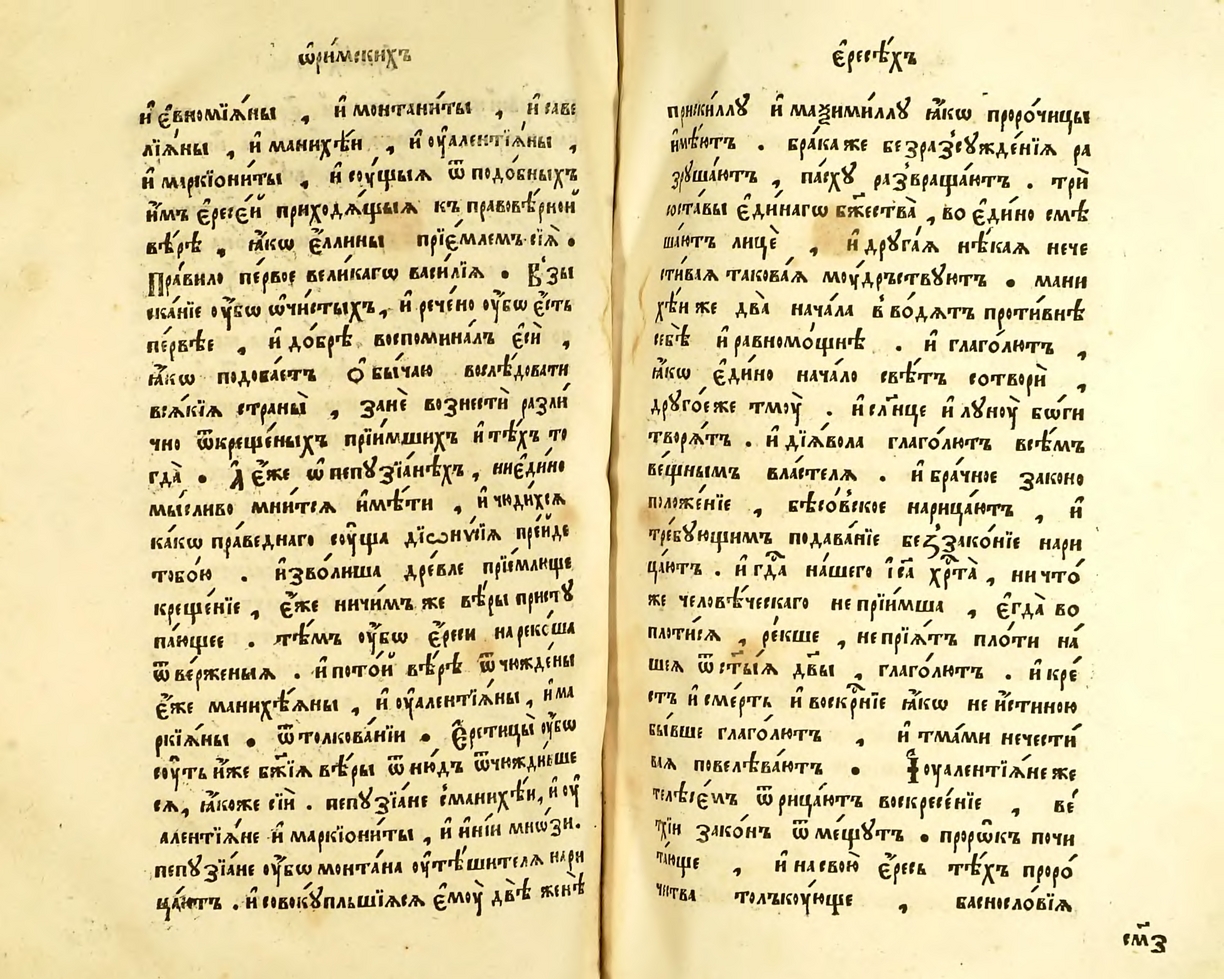 ѡ҆ри́мскихъ
и҆ є҆вномїѧ́ны , и҆ монтани́ты , и҆ саве
лїѧ́ны , и҆ манихѣ́и , и҆ ѹ҆алентїѧ́ны ,
и҆ маркїони́ты , и҆ сѹ́щыѧ ѿ подо́бныхъ
и҆́мъ є҆ресе́й приходѧ́щыѧ къ правовѣ́рной
вѣ́рѣ , ꙗ҆́кѡ є҆́ллины прїе́млемъ сїѧ̀ .
Пра́вило пе́рвое вели́кагѡ васи́лїѧ . В̾зы
ска́нїе ѹ҆́бѡ ѡ҆чи́стыхъ , и҆ рече́но ѹ҆́бѡ є҆́сть
пе́рвѣе , и҆ до́брѣ воспомина́лъ є҆сѝ ,
ꙗ҆́кѡ подоба́етъ Ѻ҆бы́чаю вослѣ́довати
всѧ́кїѧ страны̀ , занѐ вознестѝ разли
чно ѿкреще́ныхъ прїи́мшихъ и҆ тѣ́хъ то
гда̀ . А҆ є҆́же ѡ҆ пепꙋзїа́нѣхъ , ниє҆ди́но
мы́сливо мни́тсѧ и҆мѣ́ти , и҆ чюди́хсѧ
ка́кѡ пра́веднаго сѹ́ща дїѡни́сїѧ пре́йде
тобо́ю . И҆зво́лиша дре́вле прїе́млище
креще́нїе , є҆́же ничи́мъ же вѣ́ры пристꙋ
па́ющее . тѣ́мъ ѹ҆́бѡ є҆́реси нареко́ша
ѿве́рженыѧ . и҆ пото́й вѣ́рѣ ѿчюжде́ны
є҆́же манихѣ́ѧны , и҆ ѹ҆алентїѧ́ны , и҆ ма
ркїѧ́ны . ѿ толкова́нїи . Є҆рети́цы ѹ҆́бѡ
сѹ́ть и҆́же бж҃їѧ вѣ́ры ѿню́дъ ѿчюжди́вше
сѧ , ꙗ҆́коже сїѝ . пепꙋзїа́не с̾манихѣ́и , и҆ ѹ҆
алентїѧ́не и҆ маркїони́ты , и҆ и҆ні́и мнѡ́зи .
пепꙋзїа́не ѹ҆́бѡ монта́на ѹ҆тѣ́шителѧ нари
ца́ютъ . и҆ совокꙋ́пльшїѧсѧ є҆мѹ̀ двѣ̀ женѣ̀
є҆ресѣ́хъ
приски́ллꙋ и҆ маѯими́ллꙋ ꙗ҆́кѡ проро́чицы
и҆мѣ́ютъ . бра́каже безразсꙋжде́нїѧ ра
зрꙋша́ютъ , па́схꙋ развраща́ютъ . трѝ
соста́вы є҆ди́нагѡ бж҃ества̀ , во є҆ди́но смѣ
ша́ютъ лицѐ , и҆ дрꙋга́ѧ нѣ́каѧ нече
сти́ваѧ такова́ѧ мѹ́дрьствꙋютъ . мани
хѣ́и же два̀ нача́ла в̾во́дѧтъ проти́внѣ
себѣ̀ и҆ равномо́щнѣ . и҆ глаго́лютъ ,
ꙗ҆́кѡ є҆ди́но нача́ло свѣ́тъ сотворѝ ,
дрꙋго́еже тмѹ̀ . и҆ сл҃нце и҆ лꙋнѹ̀ бѡ́ги
творѧ́тъ . и҆ дїѧ́вола глаго́лютъ всѣ́мъ
ве́щнымъ власте́лѧ . и҆ бра́чное законо
положе́нїе , бѣсо́вское нарица́ютъ , и҆
тре́бꙋющимъ подава́нїе беззако́нїе нари
ца́ютъ . и҆ гд҃а на́шего і҆с҃а хрⷭ҇та̀ , ничто́
же человѣ́ческаго непрїи́мша , є҆гда̀ во
плоти́сѧ , ре́кше , непрїѧ́тъ пло́ти на́
шеѧ ѿ ст҃ы́ѧ дв҃ы , глаго́лютъ . и҆ кре́
стъ и҆ сме́рть и҆ воскрⷭ҇нїе ꙗ҆́кѡ не и҆́стиною
бы́вше глаго́лютъ , и҆ тма́ми нечести́
выѧ повелѣва́ютъ . І҆ ѹ҆алентїѧ́неже
телесе́мъ ѿрица́ютъ воскресе́нїе , ве́
тхїи зако́нъ ѿме́щꙋтъ . проро́къ почи
та́юще , и҆ насвою̀ є҆́ресь тѣ́хъ проро́
чества толъкѹ́юще , басносло́вїѧ
см҃з